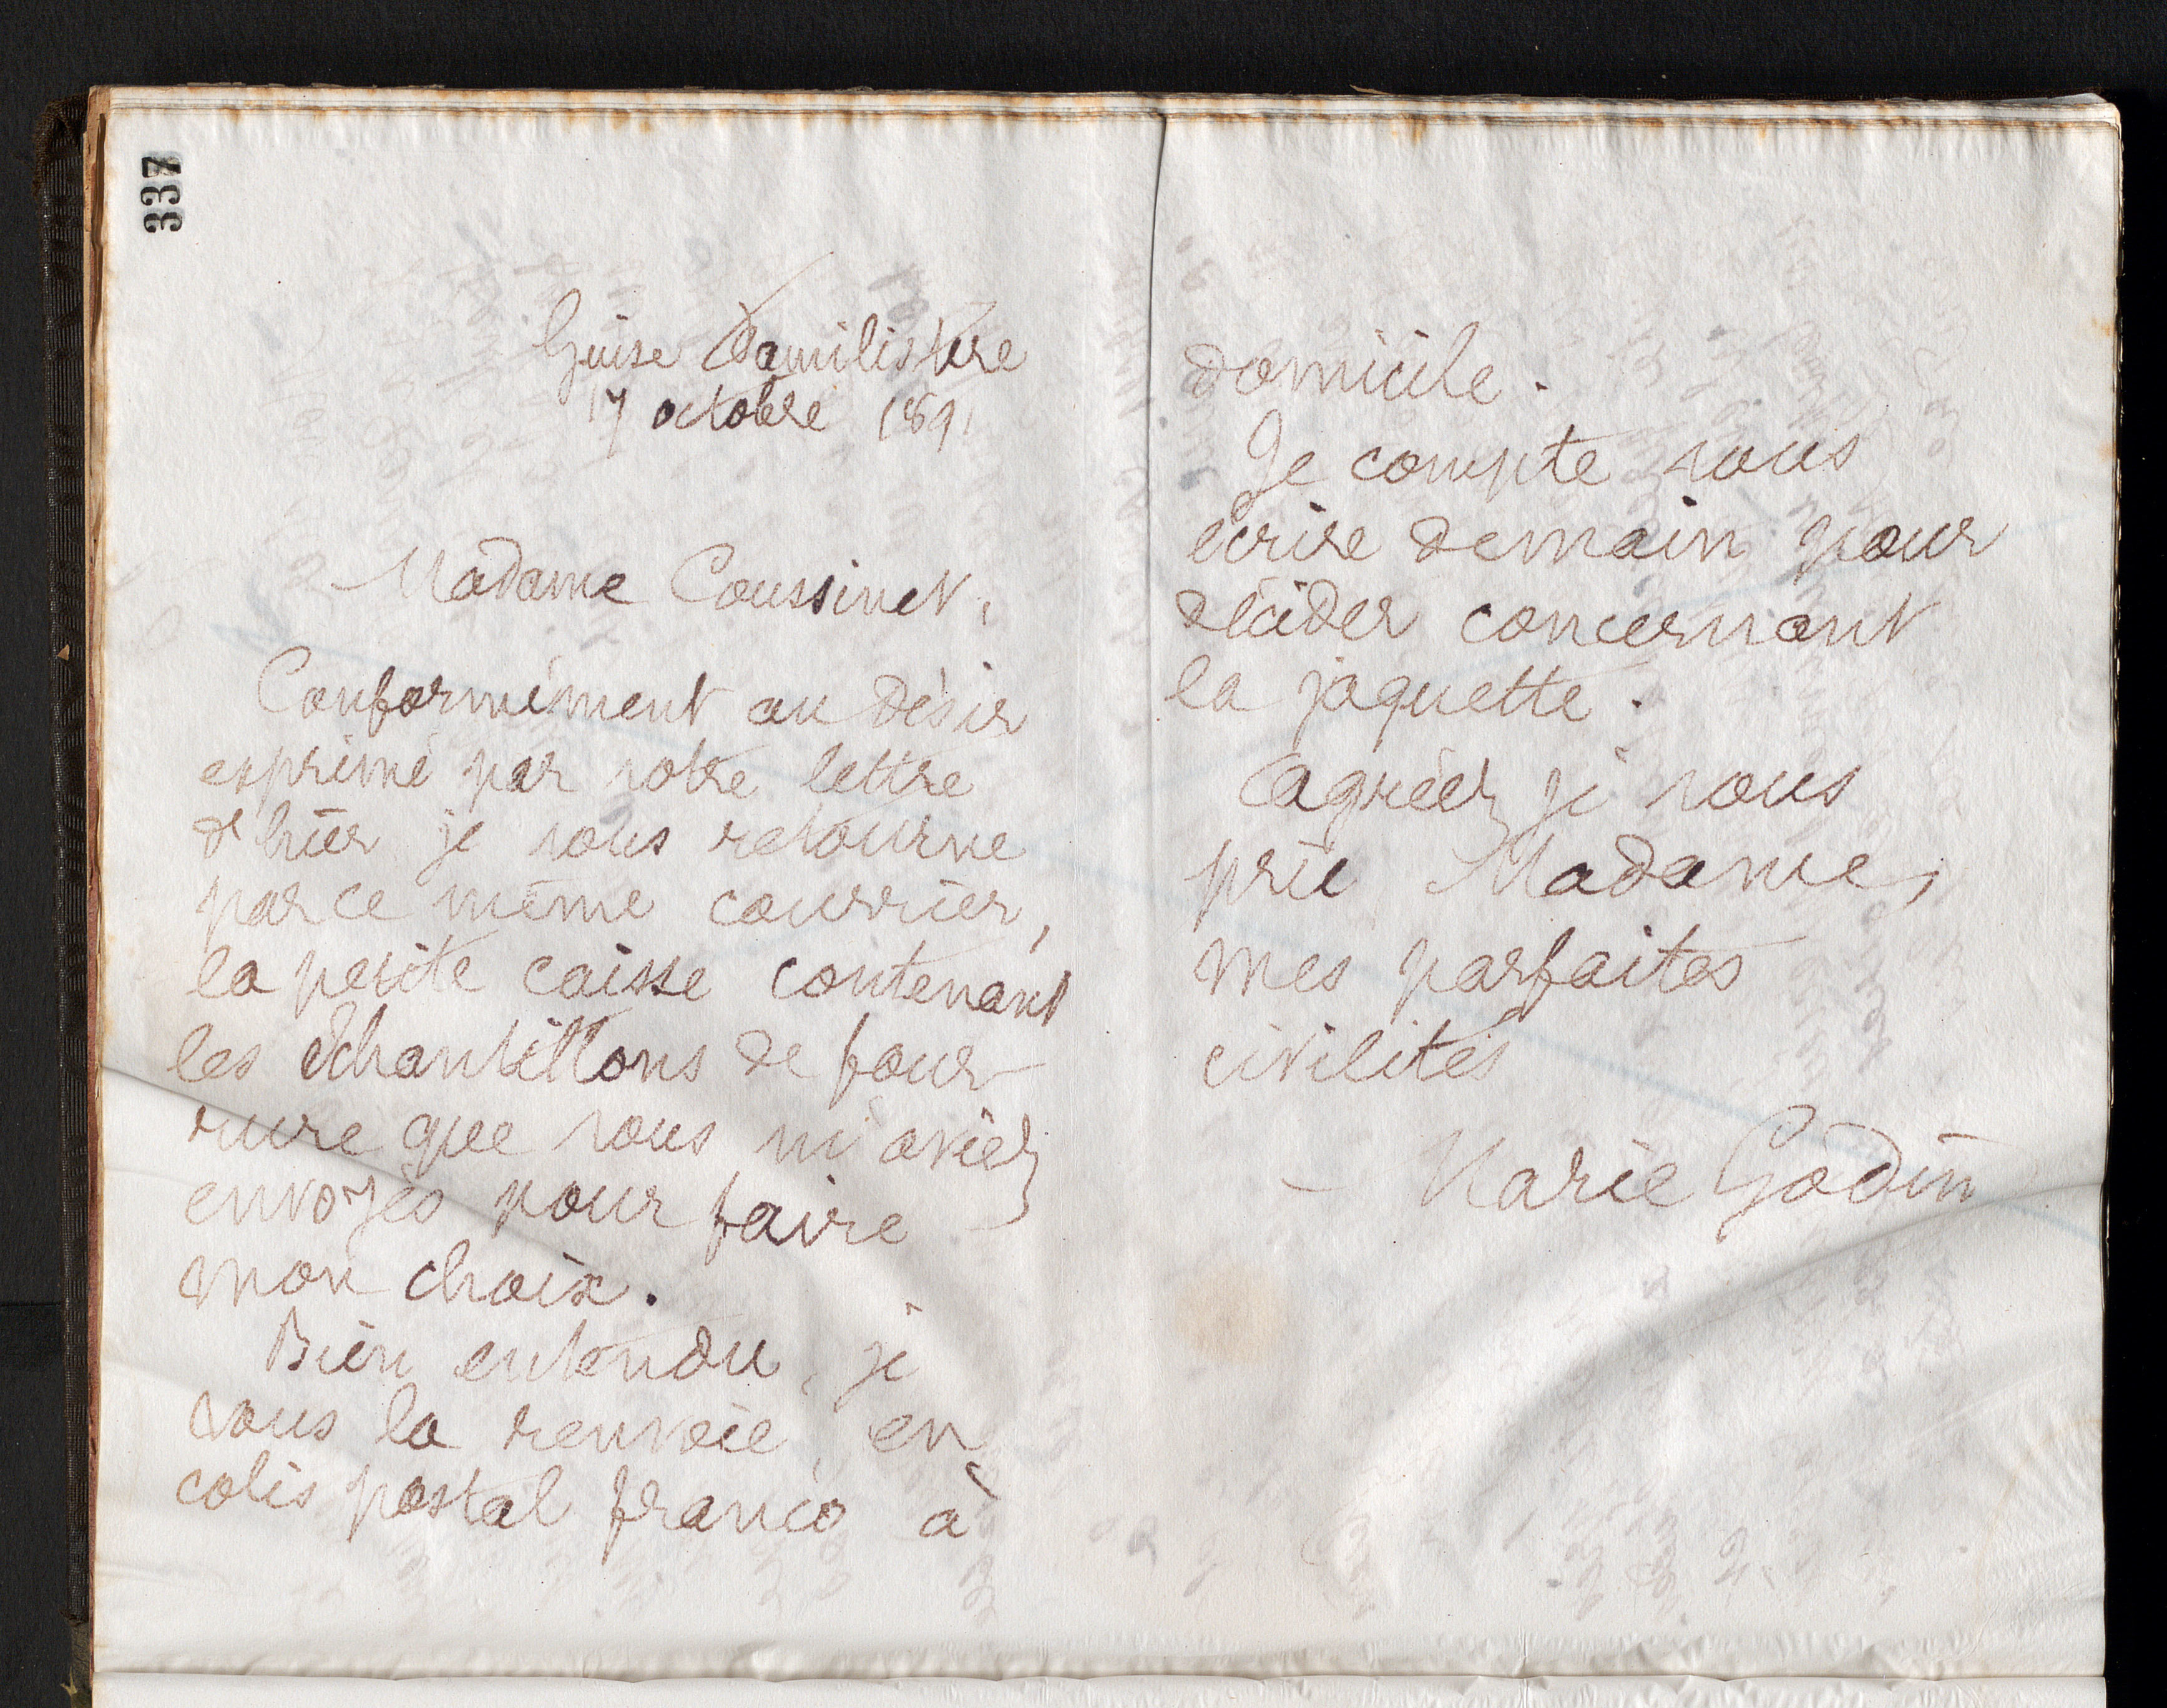 337
Guise Familistère
17 octobre 1891
Madame Coussinet,
Conformément au désir
exprimé par votre lettre
d'hier je vous retourne
par ce même courrier,
la petite caisse contenant
les échantillons de four-
rure que vous m'aviez
envoyés pour faire
mon choix.
Bien entendu, je
vous la renvoie, en
colis postal franco à
domicile.
Je compte vous
écrire demain pour
décider concernant
la jaquette.
Agréez je vous
prie Madame,
mes parfaites
civilités
Marie Godin